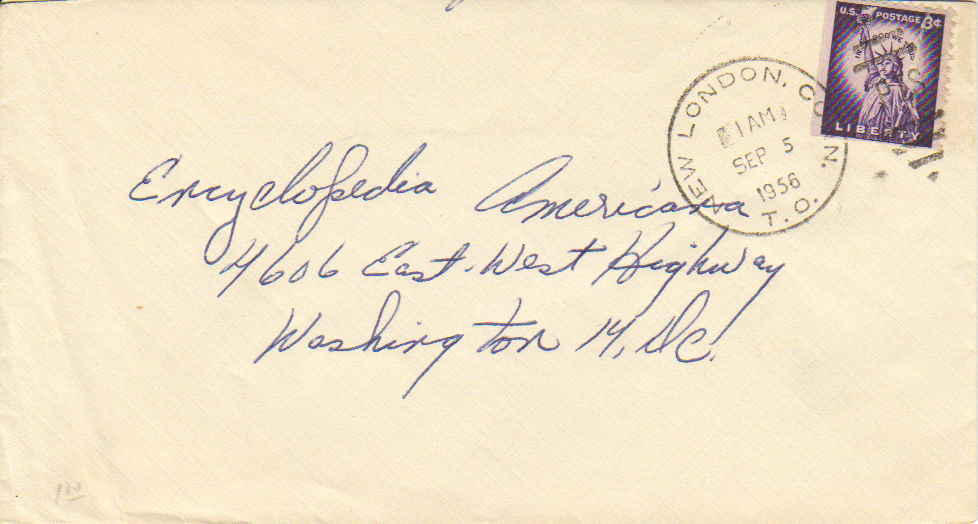 U.S. POSTAGE 3¢
IN GOD WE TRUST
LIBERTY
NEW LONDON, CONN.
1 AM
SEP 5
1956
T.O.
Encyclopedia Americana
4606 East-West Highway
Washington 14, D.C.